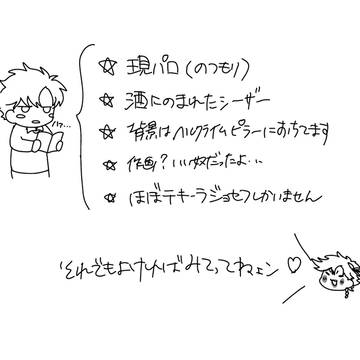 ☆ 現パロ(のつもり)
☆ 酒にのまれたシーザー
☆ 背景はヘルクライムピラーにおちてます
☆ 作画?いい奴だったよ…
☆ ほぼテキーラジョセフしかいません
それでもよければみてってねェン♡